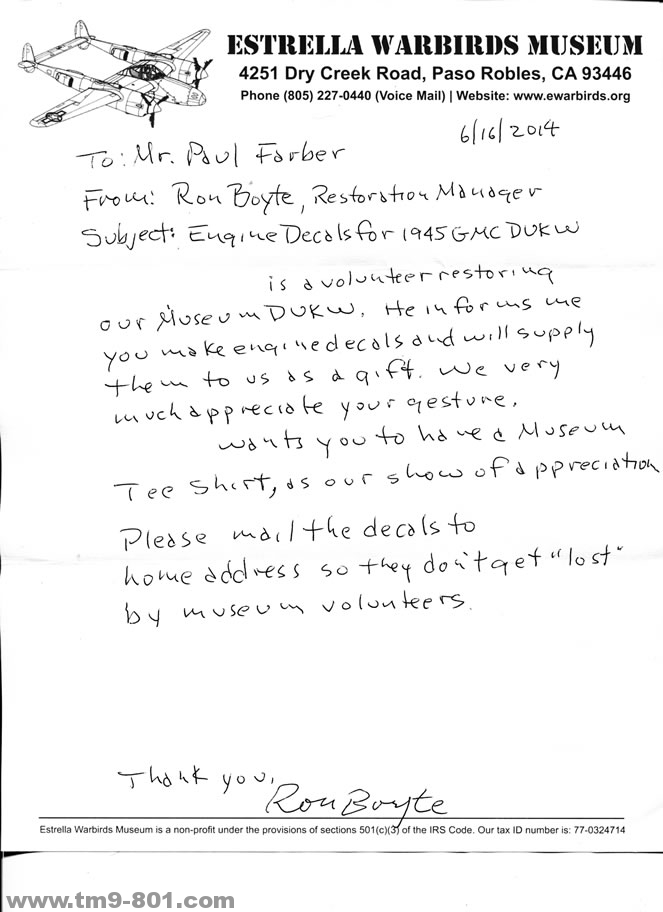 ESTRELLA WARBIRDS MUSEUM
4251 Dry Creek Road, Paso Robles, CA 93446
Phone (805) 227-0440 (Voice Mail) | Website: www.ewarbirds.org
6/16/2014
To: Mr. Paul Farber
From: Ron Boyte, Restoration Manager
Subject: Engine Decals for 1945 GMC DUKW
is a volunteer restoring
our Museum DUKW. He informs me
you make engine decals and will supply
them to us as a gift. We very
much appreciate your gesture.
wants you to have a Museum
Tee Shirt, as our show of appreciation
Please mail the decals to
home address so they don't get "lost"
by museum volunteers.
Thank you,
Ron Boyte
Estrella Warbirds Museum is a non-profit under the provisions of sections 501(c)(3) of the IRS Code. Our tax ID number is: 77-0324714
www.tm9-801.com